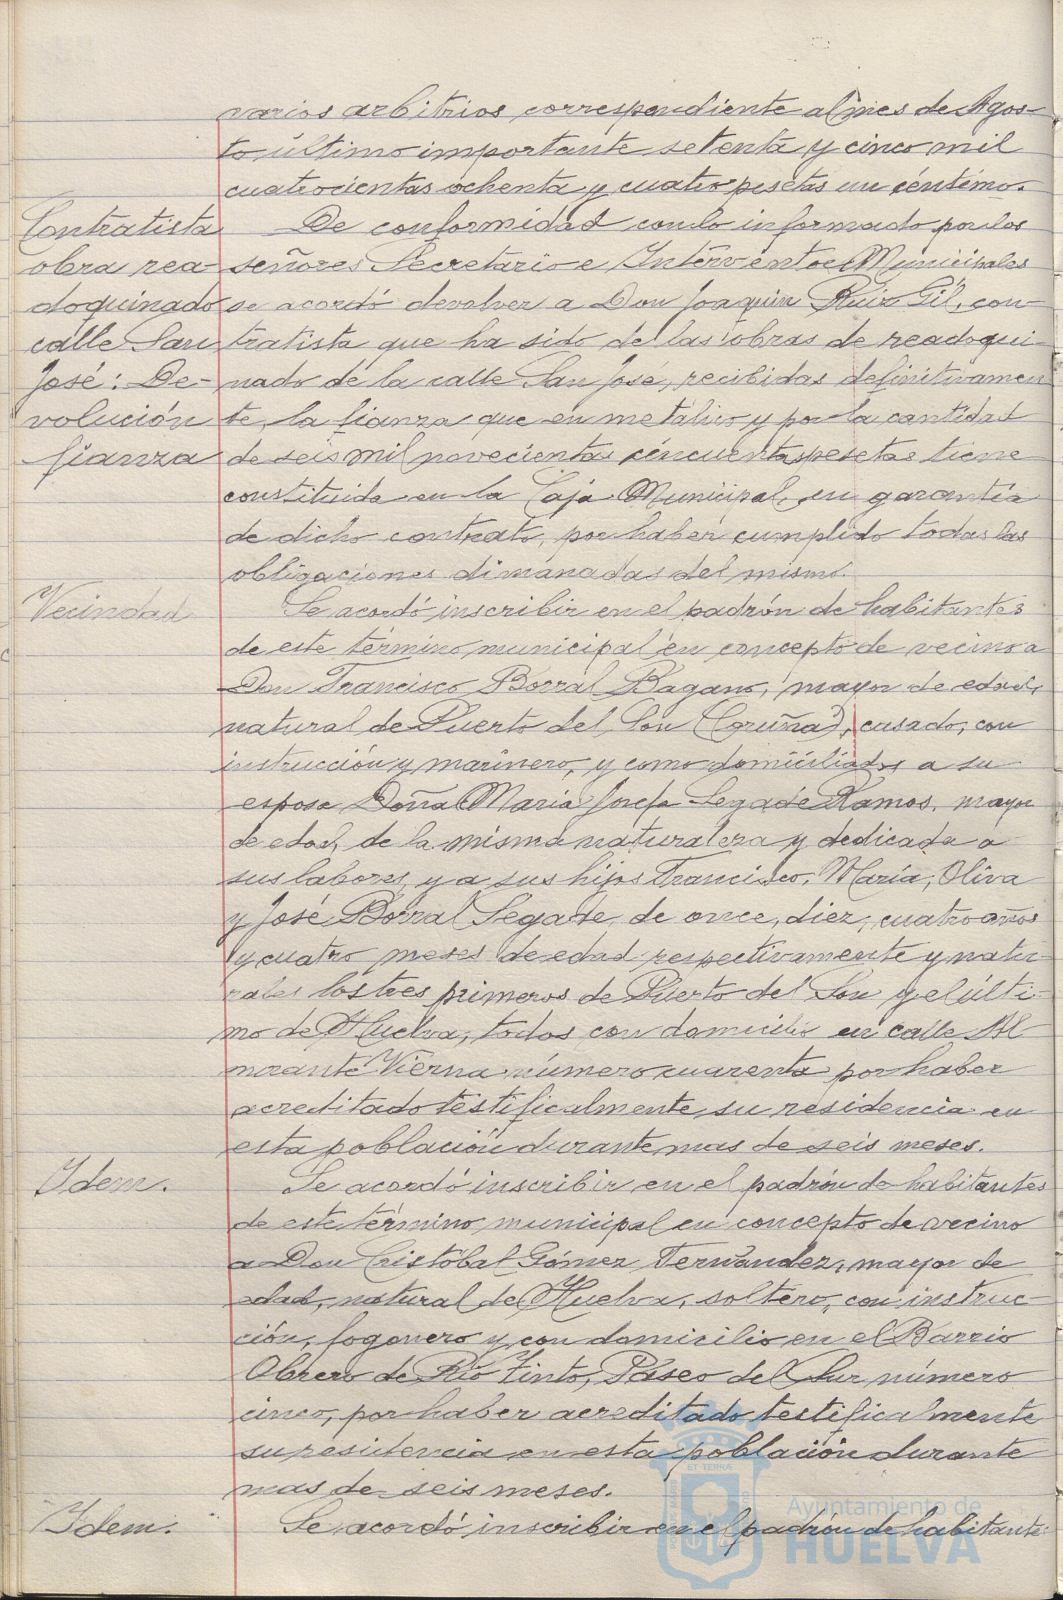 varios arbitrios correspondiente al mes de Agos-
to último importante setenta y cinco mil
cuatrocientas ochenta y cuatro pesetas un céntimo.
Contratista
obra rea-
doquinado
calle San
José: De-
volución
fianza
De conformidad con lo informado por los
señores Secretario e Interventor Municipales
se acordó devolver a Don Joaquin Ruiz Gil, con-
tratista que ha sido de las obras de readoqui-
nado de la calle San José, recibidas definitivamen
te, la fianza que en metálico y por la cantidad
de seis mil novecientas cincuenta pesetas tiene
constituida en la Caja Municipal, en garantía
de dicho contrato, por haber cumplido todas las
obligaciones dimanadas del mismo.
Vecindad
Se acordó inscribir en el padrón de habitantes
de este término municipal en concepto de vecino a
Don Francisco Borral Bagano, mayor de edad,
natural de Puerto del Son (Coruña), casado, con
instrucción y marinero, y como domiciliados a su
esposa Doña María Josefa Segade Ramos, mayor
de edad, de la misma naturaleza y dedicada a
sus labores, y a sus hijos Francisco, María, Oliva
y José Borral Segade, de once, diez, cuatro años
y cuatro meses de edad respectivamente y natu-
rales los tres primeros de Puerto del Son y el últi-
mo de Huelva, todos con domicilio en calle Al
mirante Vierna número cuarenta por haber
acreditado testificalmente su residencia en
esta población durante mas de seis meses.
Idem.
Se acordó inscribir en el padrón de habitantes
de este término municipal en concepto de vecino
a Don Cristóbal Gómez Fernández, mayor de
edad, natural de Huelva, soltero, con instruc-
ción, fogonero y con domicilio en el Barrio
Obrero de Río Tinto, Paseo del Sur número
cinco, por haber acreditado testificalmente
su residencia en esta población durante
mas de seis meses.
Idem.
Se acordó inscribir en el padrón de habitantes
Ayuntamiento de
HUELVA